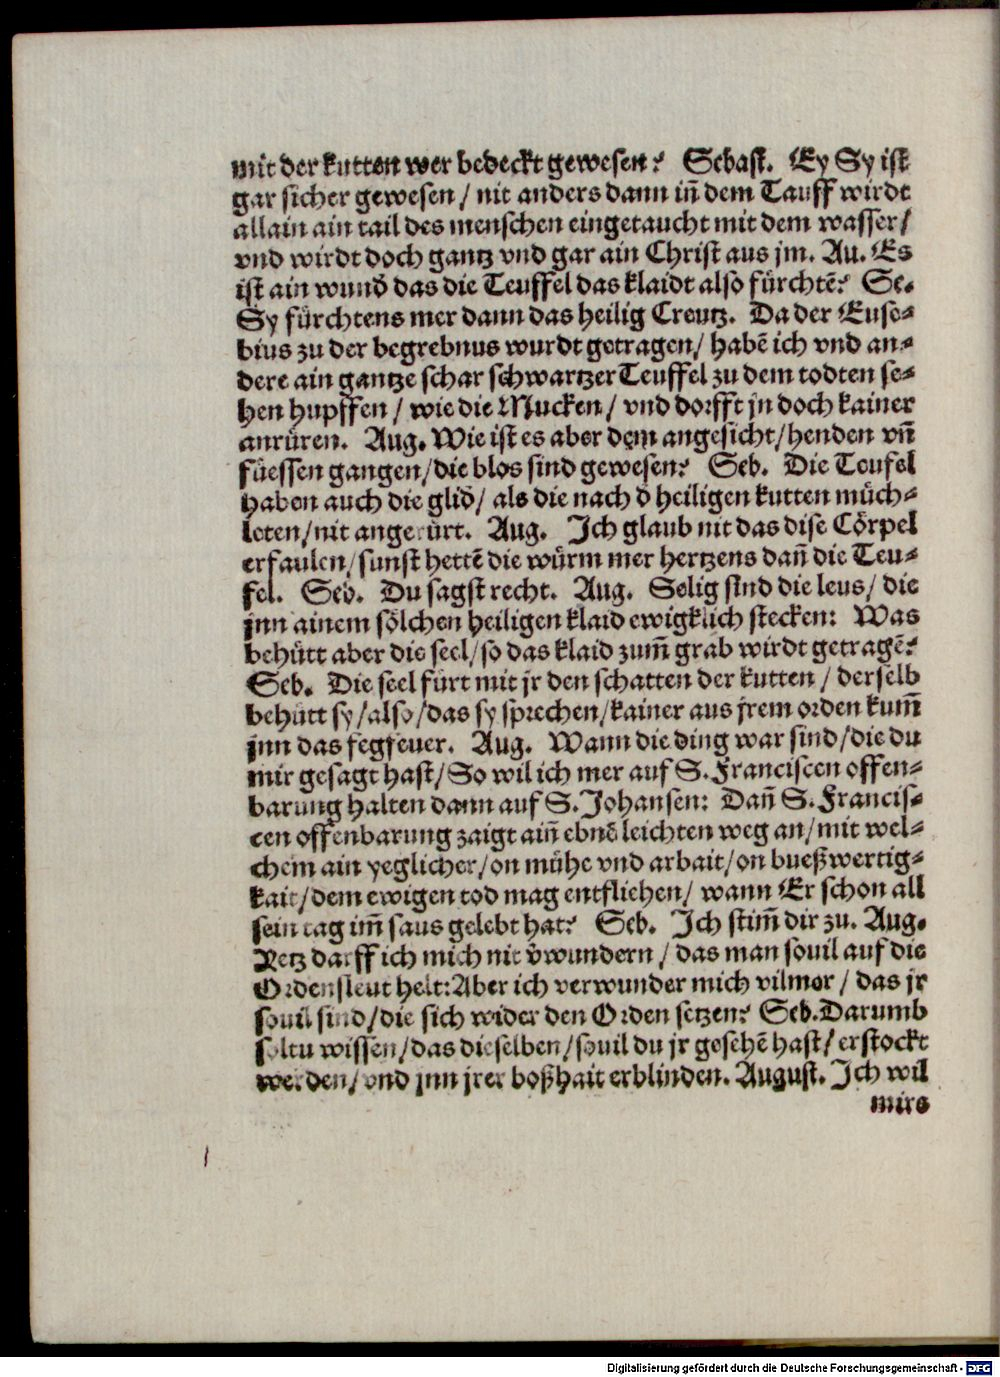 mit der kutten wer bedeckt gewesen? Sebast. Ey Sy ist
gar sicher gewesen / nit anders dann iñ dem Tauff wirdt
allain ain tail des menschen eingetaucht mit dem wasser /
vnd wirdt doch gantz vnd gar ain Christ aus jm. Au. Es
ist ain wund̄ das die Teuffel das klaidt also fürchtē? Se.
Sy fürchtens mer dann das heilig Creutz. Da der Euse-
bius zu der begrebnus wurdt getragen / habē ich vnd an-
dere ain gantze schar schwartzer Teuffel zu dem todten se-
hen hupffen / wie die Mucken / vnd dorfft jn doch kainer
anrüren. Aug. Wie ist es aber dem angesicht / henden vñ
füessen gangen / die blos sind gewesen? Seb. Die Teufel
haben auch die glid̄ / als die nach d̄ heiligen kutten müch-
leten / nit angerürt. Aug. Ich glaub nit das dise Cörpel
erfaulen / sunst hettē die würm mer hertzens dañ die Teu-
fel. Seb. Du sagst recht. Aug. Selig sind die leus / die
jnn ainem sölchen heiligen klaid ewigklich stecken: Was
behütt aber die seel / so das klaid zum̄ grab wirdt getragē?
Seb. Die seel fürt mit jr den schatten der kutten / derselb
behütt sy / also / das sy sprechen / kainer aus jrem orden kum̄
jnn das fegfeuer. Aug. Wann die ding war sind / die du
mir gesagt hast / So wil ich mer auf S. Franciscen offen-
barung halten dann auf S. Johansen: Dañ S. Francis-
cen offenbarung zaigt aiñ ebnē leichten weg an / mit wel-
chem ain yeglicher / on mühe vnd arbait / on bueßwertig-
kait / dem ewigen tod mag entfliehen / wann Er schon all
sein tag im̄ saus gelebt hat? Seb. Ich stim̄ dir zu. Aug.
Yetz darff ich mich nit v̄wundern / das man souil auf die
Ordensleut helt: Aber ich verwunder mich vilmer / das jr
souil sind / die sich wider den Orden setzen? Seb. Darumb
soltu wissen / das dieselben / souil du jr gesehē hast / erstockt
werden / vnd jnn jrer boßhait erblinden. August. Ich wil
mirs
Digitalisierung gefördert durch die Deutsche Forschungsgemeinschaft - DFG